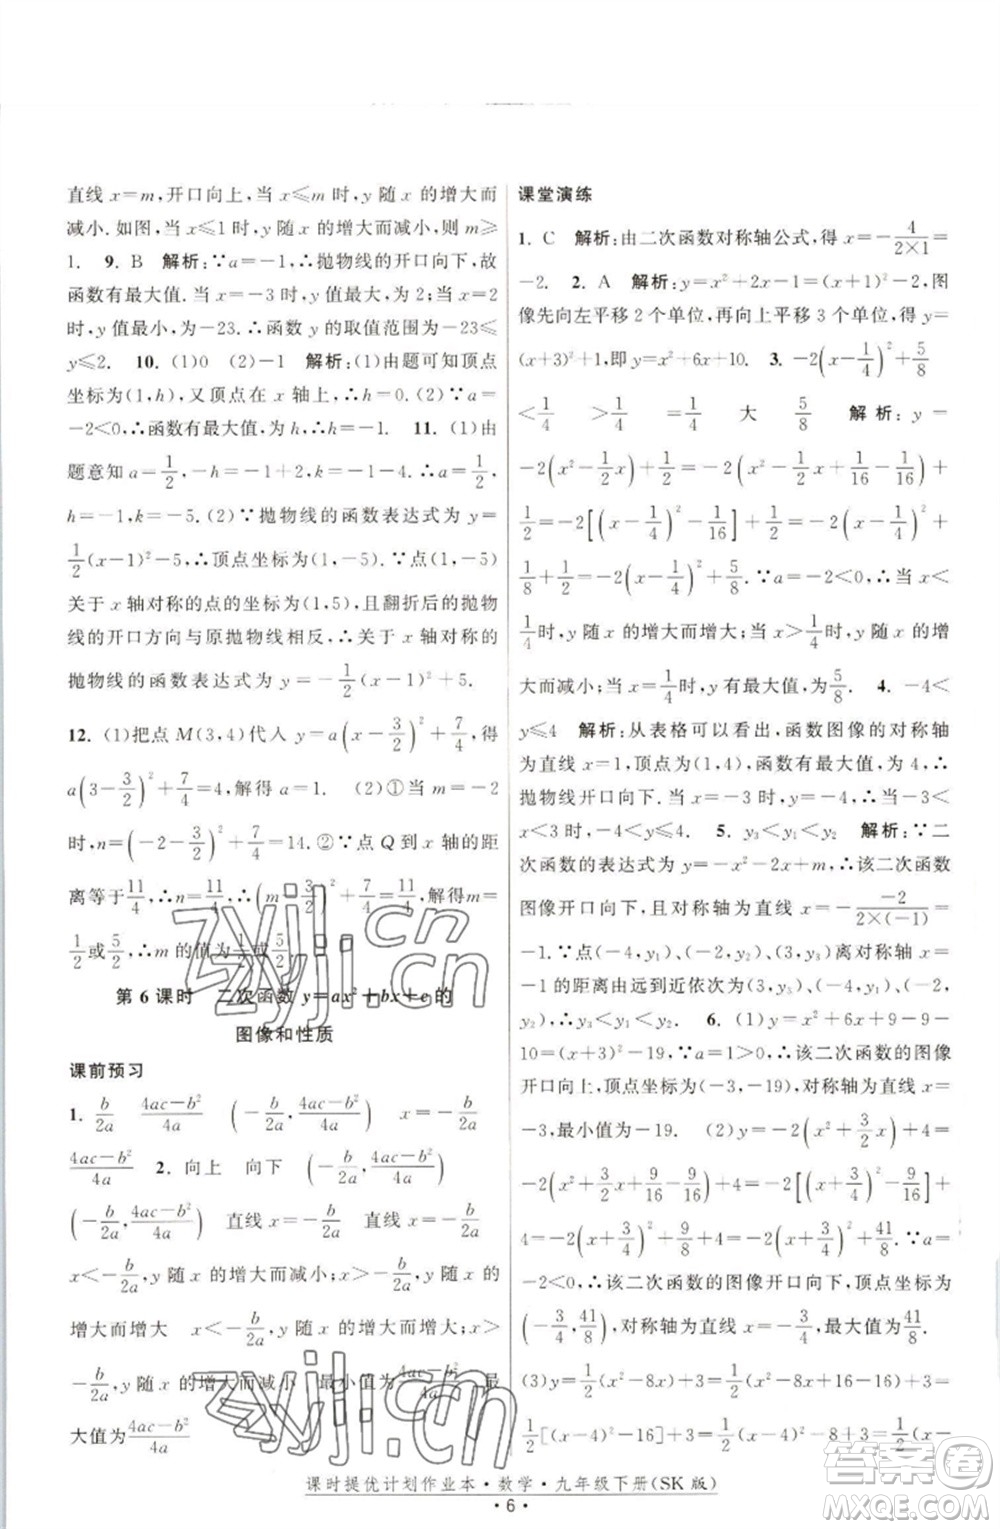 直线 x=m,开口向上,当 x≤m 时,y 随 x 的增大而
减小. 当 x≤1 时,y 随 x 的增大而减小,则 m≥
1. 9. B 解析:∵a=-1,∴抛物线的开口向下,故
函数有最大值. 当 x=-3 时,y 值最大,为 2;当 x=2
时,y 值最小,为-23.∴函数 y 的取值范围为-23≤
y≤2. 10. (1)0 (2)-1 解析:(1)由题可知顶点
坐标为(1,h),又顶点在 x 轴上,∴h=0.(2)∵a=
-2<0,∴函数有最大值,为 h,∴h=-1. 11. (1)由
题意知 a=1/2,-h=-1+2,k=1-4.∴a=1/2,
h=-1,k=-5. (2)∵抛物线的函数表达式为 y=
1/2(x-1)²-5,∴顶点坐标为(1,-5).∵点(1,-5)
关于 x 轴对称的点的坐标为(1,5),且翻折后的抛物
线的开口方向与原抛物线相反,∴关于 x 轴对称的
抛物线的函数表达式为 y=-1/2(x-1)²+5.
12. (1)把点 M(3,4)代入 y=a(x-3/2)²+7/4,得
a(3-3/2)²+7/4=4,解得 a=1. (2)①当 m=-2
时,n=(-2-3/2)²+7/4=14.②∵点 Q 到 x 轴的距
离等于11/4,∴n=11/4.∴(m-3/2)²+7/4=11/4,解得m=
1/2或5/2,∴m 的值为1/2或5/2.
第 6 课时 二次函数 y=ax²+bx+c 的
图像和性质
课前预习
1. -b/2a (4ac-b²)/4a (-b/2a,(4ac-b²)/4a) x=-b/2a
(4ac-b²)/4a 2. 向上 向下 (-b/2a,(4ac-b²)/4a)
(-b/2a,(4ac-b²)/4a) 直线 x=-b/2a 直线 x=-b/2a
x<-b/2a,y 随 x 的增大而减小;x>-b/2a,y 随 x 的
增大而增大 x<-b/2a,y 随 x 的增大而增大;x>
-b/2a,y 随 x 的增大而减小 最小值为(4ac-b²)/4a 最
大值为(4ac-b²)/4a
课堂演练
1. C 解析:由二次函数对称轴公式,得 x=-4/(2×1)=
-2. 2. A 解析:∵y=x²+2x-1=(x+1)²-2,图
像先向左平移 2 个单位,再向上平移 3 个单位,得 y=
(x+3)²+1,即 y=x²+6x+10. 3. -2(x-1/4)²+5/8
<1/4 >1/4 1/4 大 5/8 解析:y=
-2(x²-1/2x)+1/2=-2(x²-1/2x+1/16-1/16)+
1/2=-2[(x-1/4)²-1/16]+1/2=-2(x-1/4)²+
1/8+1/2=-2(x-1/4)²+5/8.∵a=-2<0,∴当 x<
1/4时,y 随 x 的增大而增大;当 x>1/4时,y 随 x 的增
大而减小;当 x=1/4时,y 有最大值,为5/8. 4. -4<
y≤4 解析:从表格可以看出,函数图像的对称轴
为直线 x=1,顶点为(1,4),函数有最大值,为 4,∴
抛物线开口向下.∵当 x=3 时,y=-4,∴当-3<
x<3 时,-4<y≤4. 5. y₃<y₁<y₂ 解析:∵二
次函数的表达式为 y=-x²-2x+m,∴该二次函数
图像开口向下,且对称轴为直线 x=--2/(2×(-1))=
-1.∵点(-4,y₁),(-2,y₂),(3,y₃)离对称轴 x=
-1 的距离由远及近依次为(3,y₃),(-4,y₁),
(-2,y₂),∴y₃<y₁<y₂. 6. (1)y=x²+6x+9-9-
10=(x+3)²-19,∵a=1>0,∴该二次函数的图像
开口向上,顶点坐标为(-3,-19),对称轴为直线 x=
-3,最小值为-19. (2)y=-2(x²+3/2x)+4=
-2(x²+3/2x+9/16-9/16)+4=-2[(x+3/4)²-9/16]+
4=-2(x+3/4)²+9/8+4=-2(x+3/4)²+41/8.∵a=
-2<0,∴该二次函数的图像开口向下,顶点坐标为
(-3/4,41/8),对称轴为直线 x=-3/4,最大值为41/8.
(3)y=1/2(x²-8x)+3=1/2(x²-8x+16-16)+3=
1/2[(x-4)²-16]+3=1/2(x-4)²-8+3=1/2(x-
课时提优计划作业本·数学·九年级下册(SK 版)
·6·
zyjl.cn
zyjl.cn
作业精灵